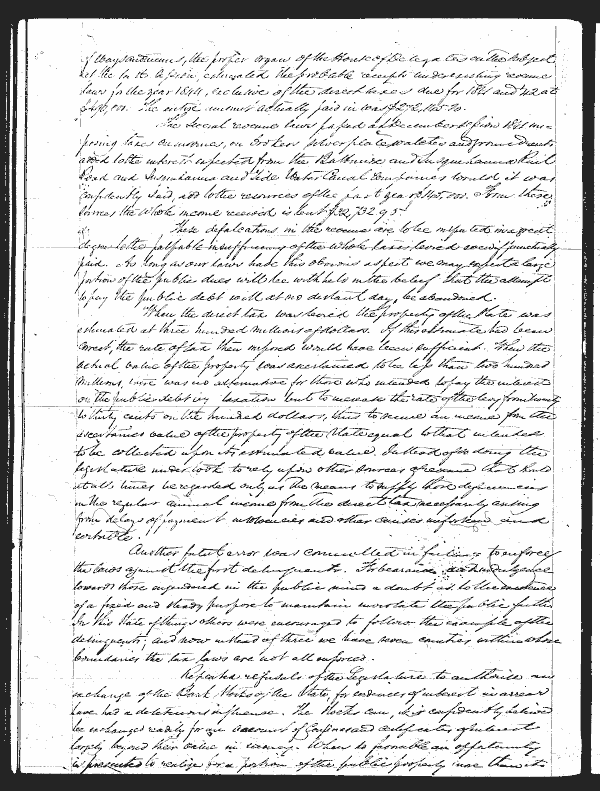 of Ways and Means, the proper organ of the House of Delegates on the subject
at the last Session, estimated the probable receipts under existing revenue
laws for the year 1844, exclusive of the direct taxes due for 1841 and 42 at
The entire amount actually paid in was
The several revenue laws passed at December Session 1841 im-
posing taxes on incomes, on brokers, silver plate, watches and
added to the interest expected from the Baltimore and Susquehanna Rail
Road and Susquehanna and Tide Water Canal Companies would it was
confidently said, add to the resources of the last year From these
sources the whole income received is but
These defalcations in the revenue are to be imputed in a great
degree to the palpable insufficiency of the whole taxes levied even if punctually
paid. As long as our laws have this obvious aspect we may expect a large
portion of the public dues will be withheld in the belief that the attempt
to pay the public debt will at no distant day, be abandoned.
When the direct tax was levied the property of the State was
estimated at three hundred millions of dollars. If this estimate had been
correct, the rate of tax then imposed would have been sufficient. When the
actual value of the property was ascertained to be less than two hundred
millions, there was no alternative for those who intended to pay the interest
on the public debt by taxation but to increase the rate of the levy from twenty
to thirty cents on the hundred dollars, thus to secure an income from the
ascertained value of the property of the State equal to that intended
to be collected upon its estimated value. Instead of so doing the
Legislature undertook to rely upon other sources of revenue that should
at all times be regarded only as the means to supply those deficiencies
in the regular annual income from the direct tax, necessarily arising
from delays of payment insolvencies and other causes
Another fatal error was committed in failing to enforce
the laws against the first delinquents. Forbearance and indulgence
towards those engendered in the public mind a doubt as to the existence
of a fixed and steady purpose to maintain inviolate the public faith.
In this state of things others were encouraged to follow the example of the
delinquents; and now instead of three we have seven counties within whose
boundaries the tax laws are not all enforced.
Repeated refusals of the Legislature to authorise an
exchange of the Bank Stocks of the State, for evidences of interest in arrear
have had a deleterious influence. The Stocks can, it is confidently believed
be exchanged readily for an amount of Coupons and certificates of interest
largely beyond their value in money. When so favorable an opportunity
is presented to realize for a portion of the public property more than its